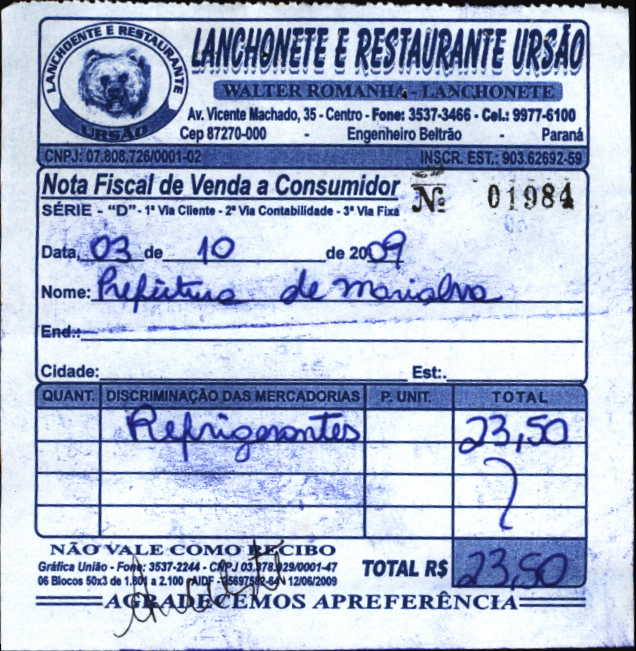 LANCHOENTE E RESTAURANTE
URSÃO
LANCHONETE E RESTAURANTE URSÃO
WALTER ROMANHA - LANCHONETE
Av. Vicente Machado, 35 - Centro - Fone: 3537-3466 - Cel.: 9977-6100
Cep 87270-000 - Engenheiro Beltrão - Paraná
CNPJ: 07.808.726/0001-02 INSCR. EST.: 903.62692-59
Nota Fiscal de Venda a Consumidor Nº 01984
SÉRIE - "D" - 1ª Via Cliente - 2ª Via Contabilidade - 3ª Via Fixa
Data, 03 de 10 de 2009
Nome: Prefeitura de Marialva
End.:
Cidade: Est:.
QUANT. DISCRIMINAÇÃO DAS MERCADORIAS P. UNIT. TOTAL
Refrigerantes 23,50
NÃO VALE COMO RECIBO
Gráfica União - Fone: 3537-2244 - CNPJ 03.378.929/0001-47
06 Blocos 50x3 de 1.801 a 2.100 12/06/2009
TOTAL R$ 23,50
AGRADECEMOS APREFERÊNCIA